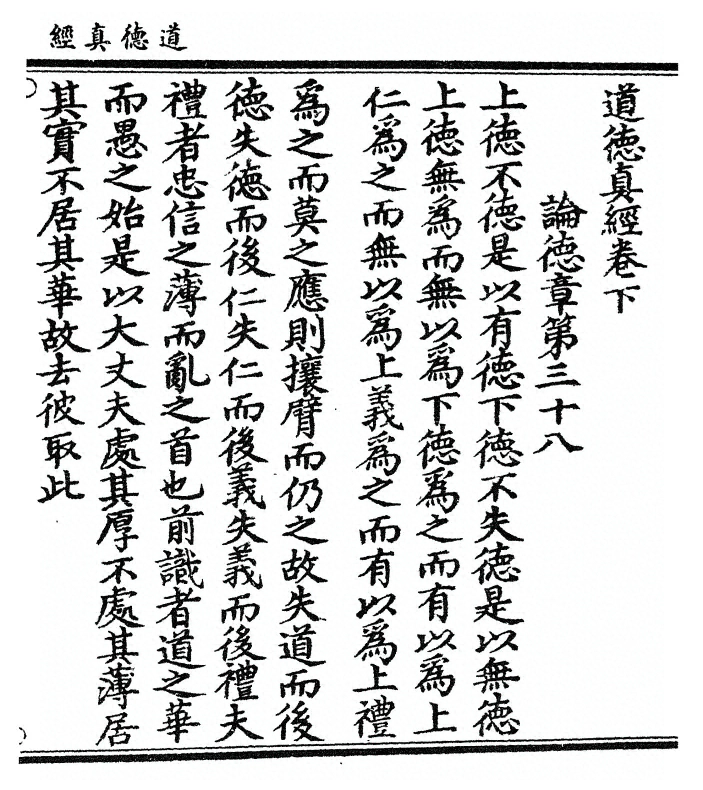 道德真經
道德真經卷下
論德章第三十八
上德不德是以有德下德不失德是以無德
上德無爲而無以爲下德爲之而有以爲上
仁爲之而無以爲上義爲之而有以爲上禮
爲之而莫之應則攘臂而仍之故失道而後
德失德而後仁失仁而後義失義而後禮夫
禮者忠信之薄而亂之首也前識者道之華
而愚之始是以大丈夫處其厚不處其薄居
其實不居其華故去彼取此